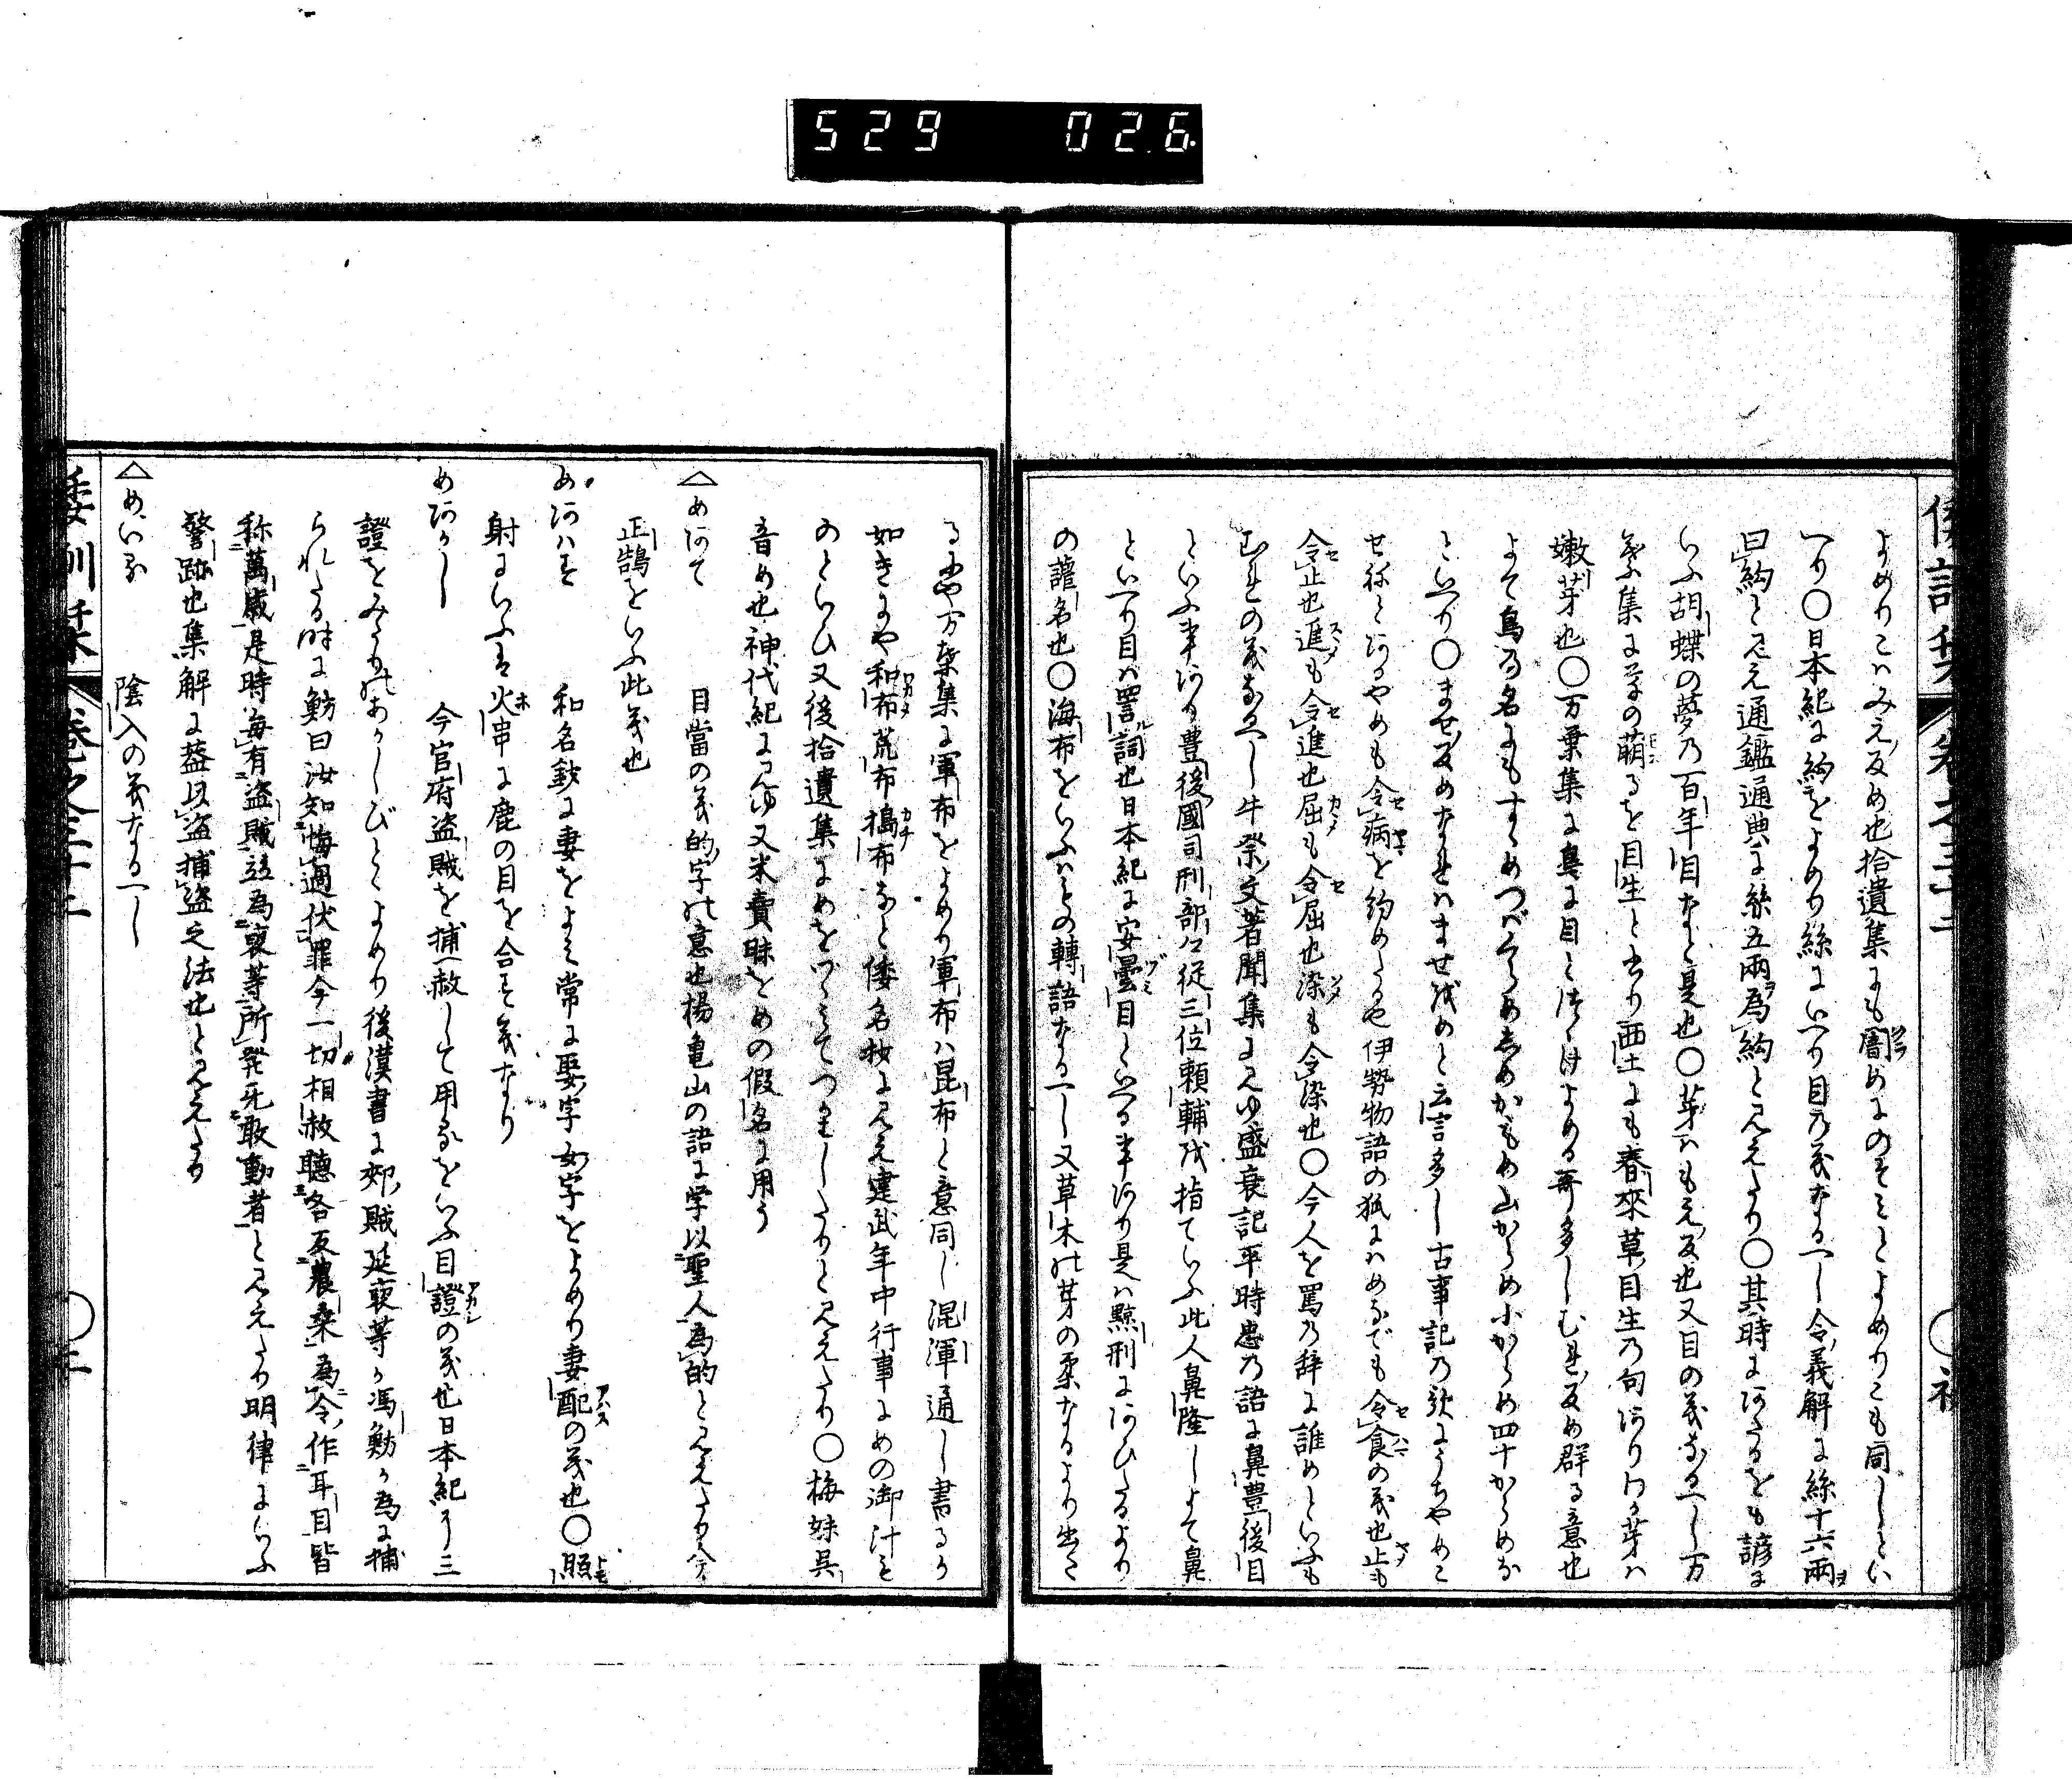 529 026
よめりこハみえ反め也拾遺集にも闇めにのそミとよめりこも同しとい
へり〇日本紀に絇をよめり絲にいへり目の義なるへし令義解に絲十六両ヲ
曰絇と見え通鑑通典に絲五兩ヲ為絇と見えたり〇其時にあたるをも諺に
いふ胡蝶の夢の百年目なと是也〇芽ハもえ反也又目の義なるへし万
葉集に草の萌るを目生と書り西土にも春來草目生の句ありわか芽ハ
嫩芽也〇万葉集に鳥に目とつゝけよめる哥多しむれ反め群る意也
よて鳥の名にもすゝめつばくらめかもめ山からめ小からめ四十からめな
といへり〇ませ反めなれハませ我めと云言多し古事記の歌にうちやめこ
せねとあるやめも令病を約めたるや伊勢物語の狐にハめなでも令食の義也止も
令止也進も令進也屈も令屈也染も令染也〇今人を罵の辞に誰めといふも
むれの義なるへし牛祭文著聞集に見ゆ盛衰記平時忠の語に鼻豊後目
といふ事あり豊後國司刑部々従三位頼輔を指ていふ此人鼻隆しよて鼻
といへり目ハ詈ル詞也日本紀に安曇目といへる事あり是ハ黥刑にあひたるより
の謔名也〇海布をいふハもの轉語なるへし又草木の芽の柔なるより出た
るにや万葉集に軍布をよめり軍布ハ昆布と意同し混渾通し書るか
如きにや和布荒布搗布なと倭名抄に見え建武年中行事にめの御汁を
のといひ又後拾遺集にめをつゝミてつかはしたりと見えたり〇梅妹呉
音め也神代紀に見ゆ又米賣昧をめの假名に用う
△めあて 目當の義的字の意也楊亀山の語に学以聖人為的と見えたり今
正鵠をいふ此義也
めあハす 和名鈔に妻をよミ常に娶字女字をよめり妻配の義也〇照
射にいふは火串に鹿の目を合す義なり
めあかし 今官府盗賊を捕へ赦して用るをいふ目證の義也日本紀に三
證をみたりのあかしびとゝよめり後漢書に郟賊延褒等か馮魴か為に捕
られたる時に魴曰汝知悔過伏罪今一切相赦聴各反農桑為令作耳目皆
称萬歳是時毎有盗賊並為褒等所発无敢動者と見えたり明律にいふ
警跡也集解に葢以盗捕盗之法也と見えたり
△めいる 陰入の義なるへし
倭訓栞 巻之三十二